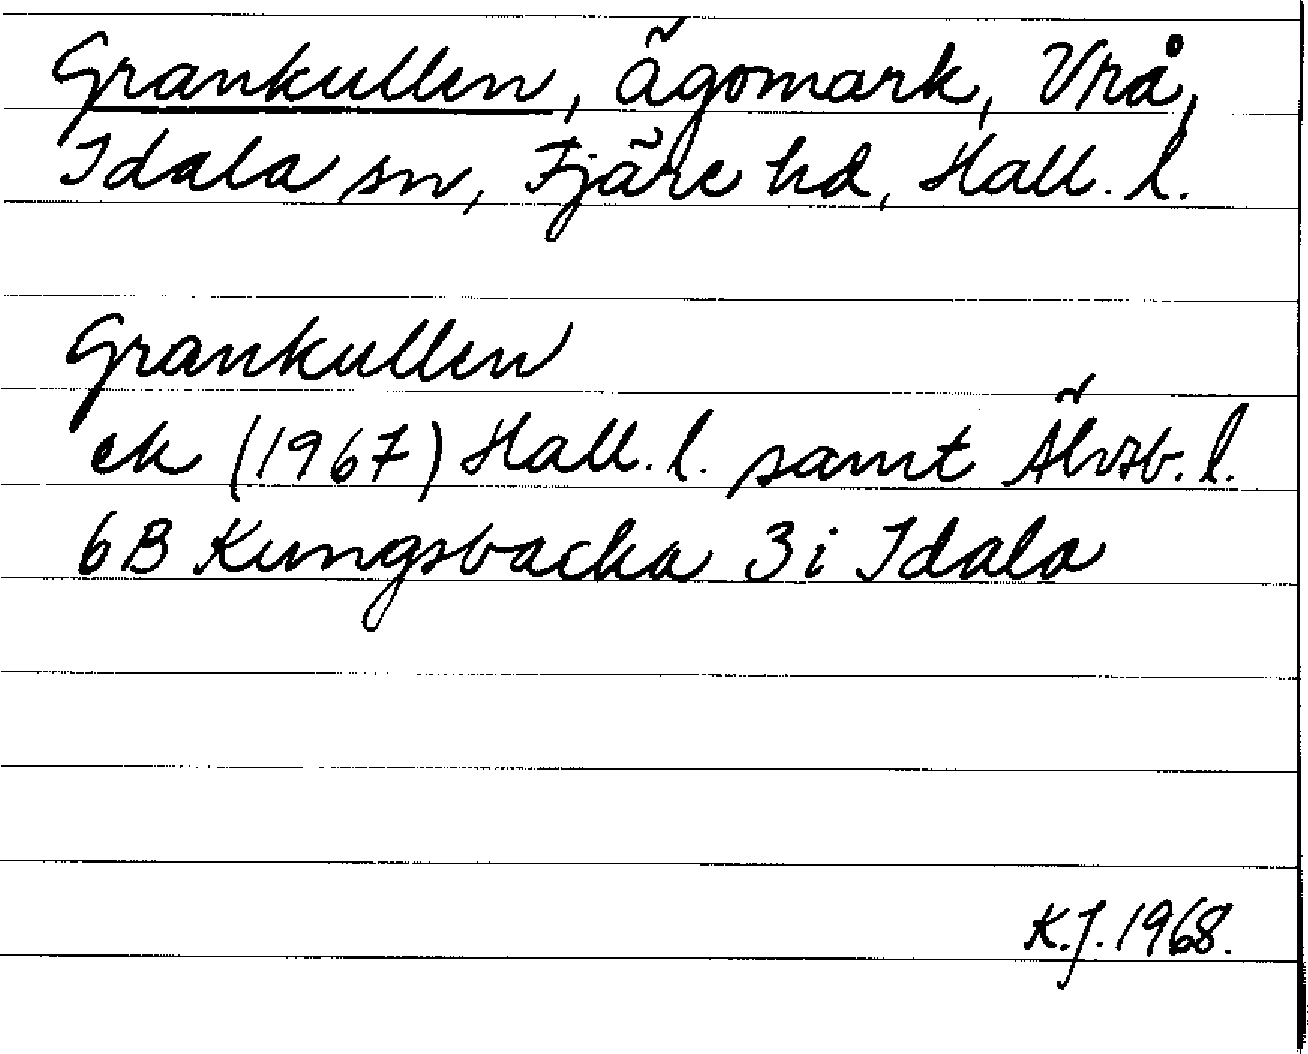 Grankullen, ägomark, Vrå,
Idala sn, Fjäre hd, Hall. l.
Grankullen
ek (1967) Hall. l. samt Älvsb. l.
6B Kungsbacka 3i Idala
K.J. 1968.